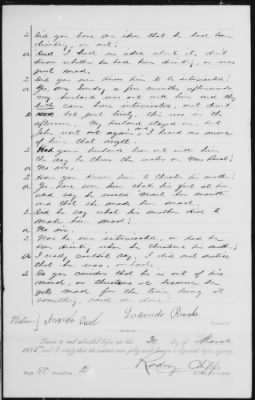 Q Did you have an idea that he had been
drinking or not?
A I had no idea about it, didn't
know whether he had been drinking or was
just mad.
Q Did you ever know him to be intoxicated?
A Yes one Sunday a few months afterwards
my husband was out with him and they
both came home intoxicated, and
but just lively, this was in the
afternoon, My husband stayed in, but
John went out again and I heard no more
of him that night.
Q Had your husband been out with him
the day he threw the water on Mrs.
A No sir.
Q Have you known him to threaten his mother?
A Yes, have seen him shake his fist at her
and say he would her mouth
and that she made him mad.
Q Did he say what his mother did to
make him mad?
A No sir.
Q Was he ever intoxicated, or had he
been drinking when he threatened his mother?
A I really couldn't say, I did not notice
that he was, or had.
Q Do you consider that he is out of his
mind, or threatens because he
gets mad for the time being at
something said or done
Lucinda
Sworn to and subscribed before me this 20 day of March
1885 and I certify that the contents were fully made known to deponent before signing.
Page 85 2